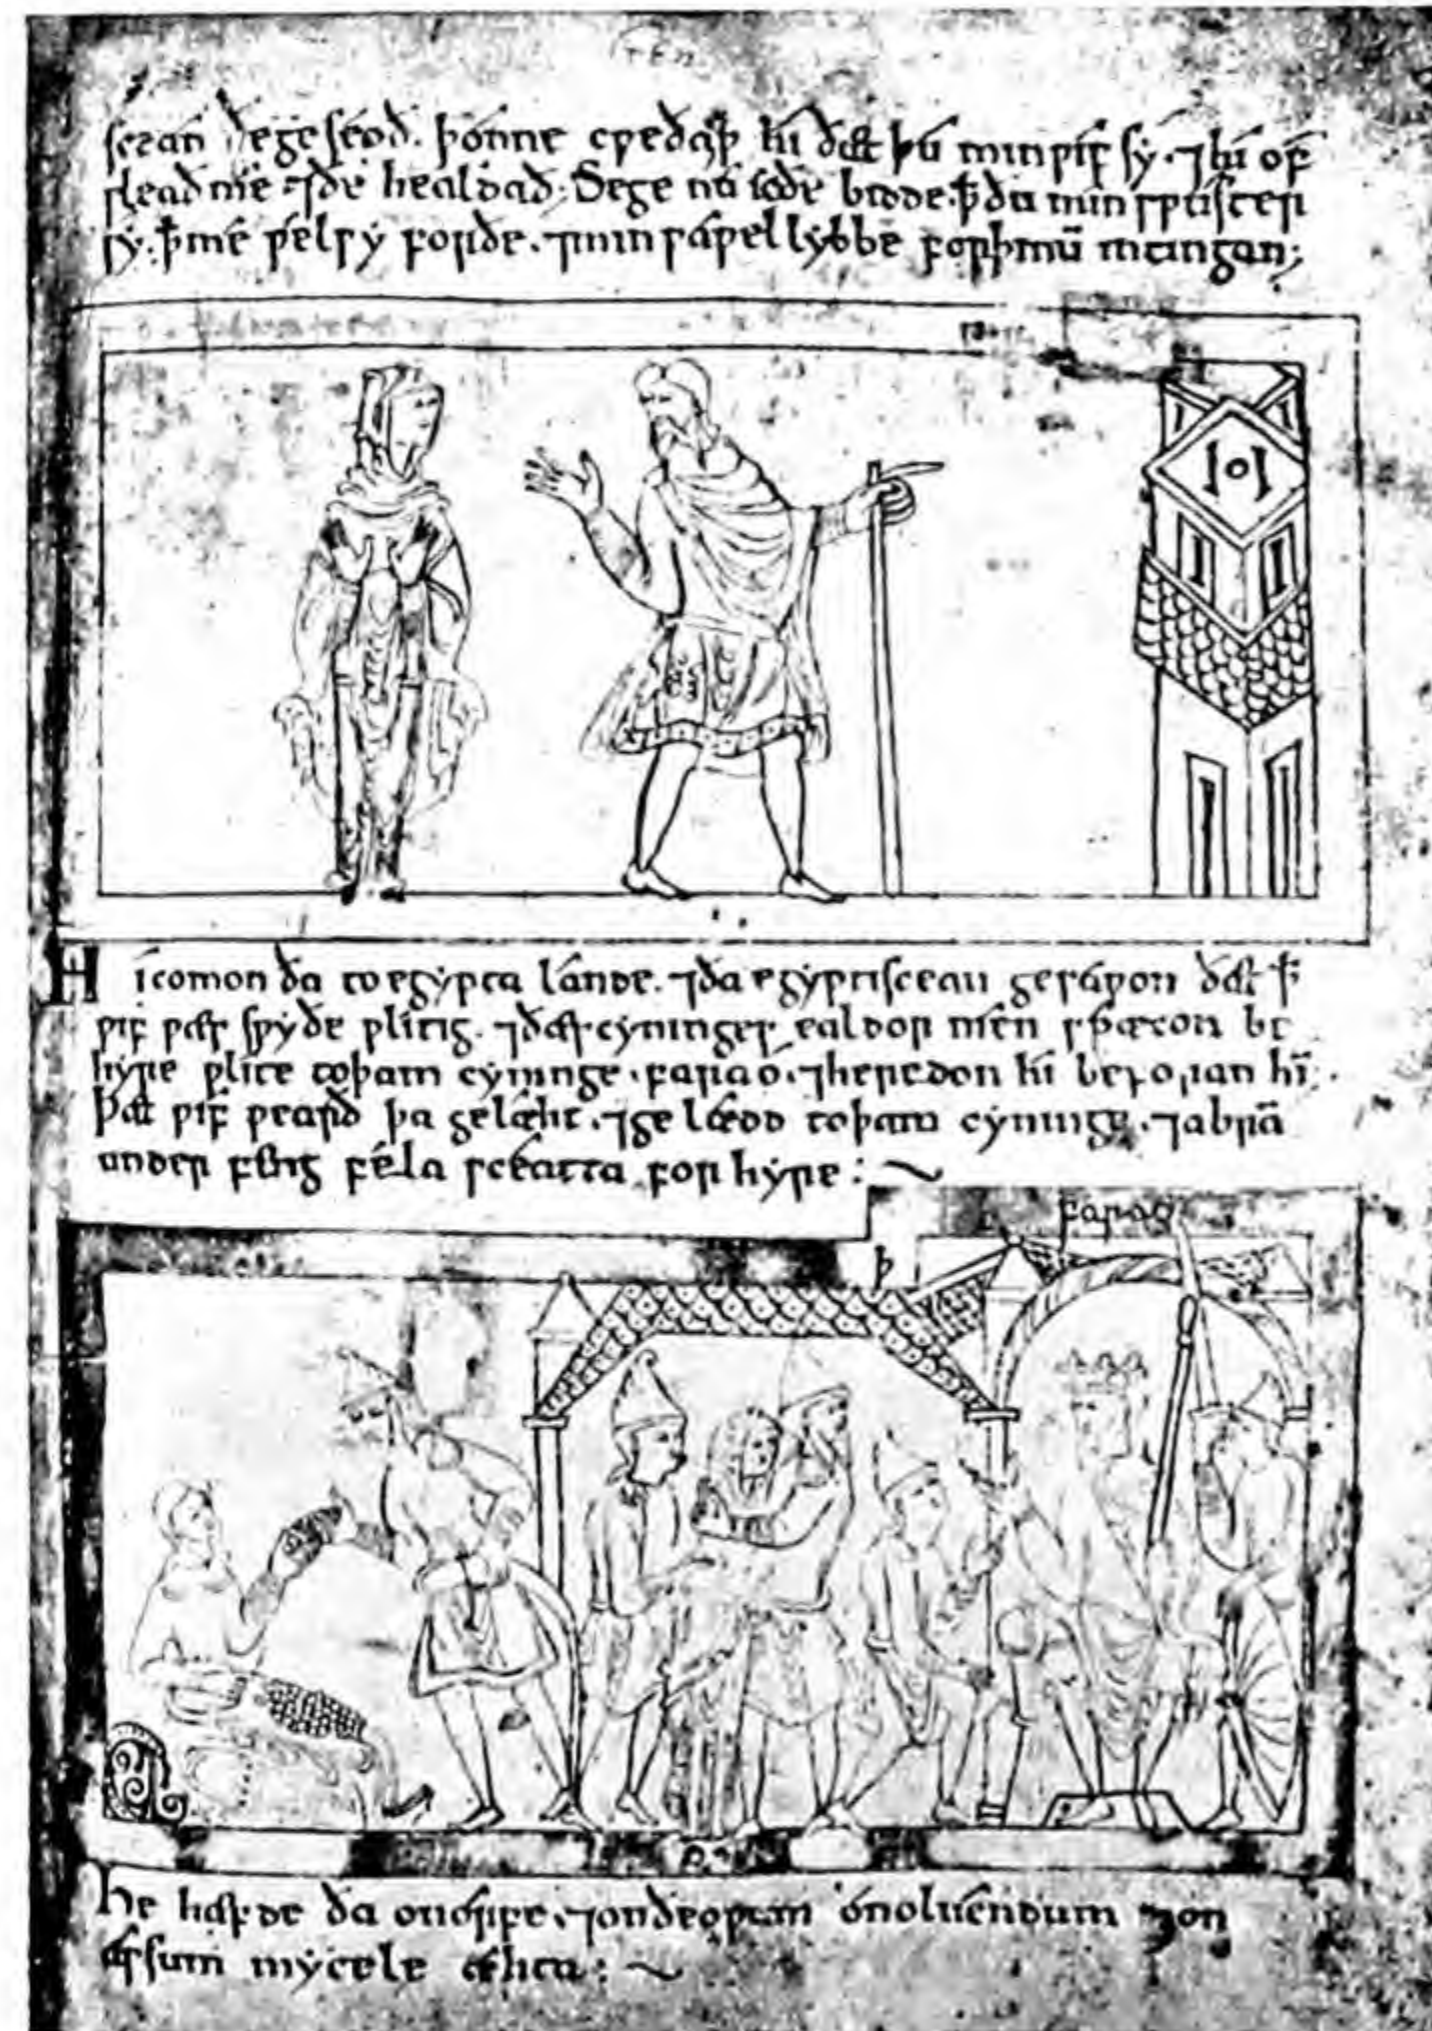 scean ðe geseoð. þonne cƿeðaþ hi ðæt þu min ƿif sy. ⁊ hi of
sleað me ⁊ ðe healdað; Sege nu ic ðe bidde. ꝥ ðu min sƿuster
sy. ꝥ me ƿel sy for ðe. ⁊ min saƿel lybbe for þinū intingan;
Hi comon ða to egypta lande. ⁊ ða egyptiscean gesaƿon ðæt ꝥ
ƿif ƿæs sƿyðe ƿlitig. ⁊ ðæs cyninges ealdor men spræcon be
hyre ƿlite to þam cyninge. farao. ⁊ heredon hi beforan hī.
þæt ƿif ƿearð þa gelæht. ⁊ gelædd to þam cyninge. ⁊ abrā
underfeng fela sceatta for hyre:
farao
He hæfde ða on orfe. ⁊ on ðeoƿum ⁊ on oluendum ⁊ on
assum mycele æhta: